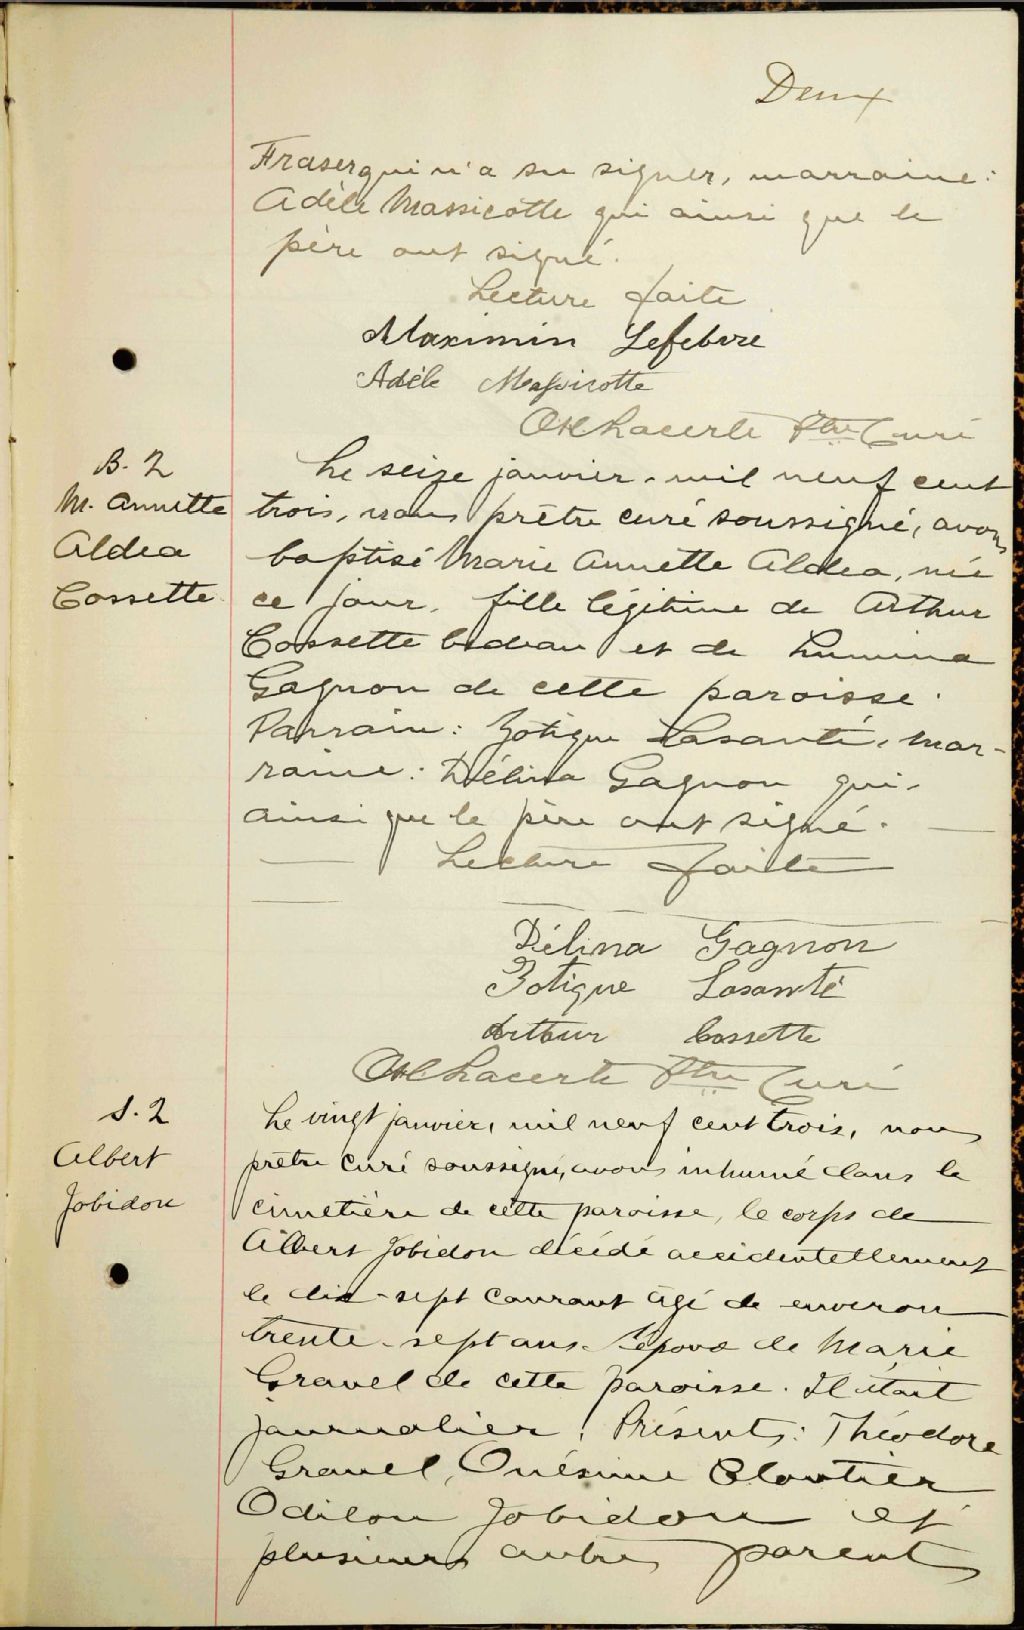 Deux
Fraser qui n'a su signer, marraine:
Adèle Massicotte qui ainsi que le
père ont signé.
Lecture faite
Maximin Lefebvre
Adèle Massicotte
Lacerte Ptre Curé
B. 2
M. Annette
Aldea
Cossette
Le seize janvier, mil neuf cent
trois, nous prêtre curé soussigné, avons
baptisé Marie Annette Aldea, née
ce jour, fille légitime de Arthur
Cossette bedeau et de Lumina
Gagnon de cette paroisse.
Parrain: Zotique Lasanté, mar-
raine: Délina Gagnon qui
ainsi que le père ont signé.
Lecture faite
Délina Gagnon
Zotique Lasanté
Arthur Cossette
Lacerte Ptre Curé
S. 2
Albert
Jobidon
Le vingt janvier, mil neuf cent trois, nous
prêtre curé soussigné, avons inhumé dans le
cimetière de cette paroisse, le corps de
Albert Jobidon décédé accidentellement
le dix-sept courant âgé de environ
trente-sept ans. époux de Marie
Gravel de cette paroisse. Il était
journalier. Présents: Théodore
Gravel, Onésime Cloutier
Odilon Jobidon et
plusieurs autres parents